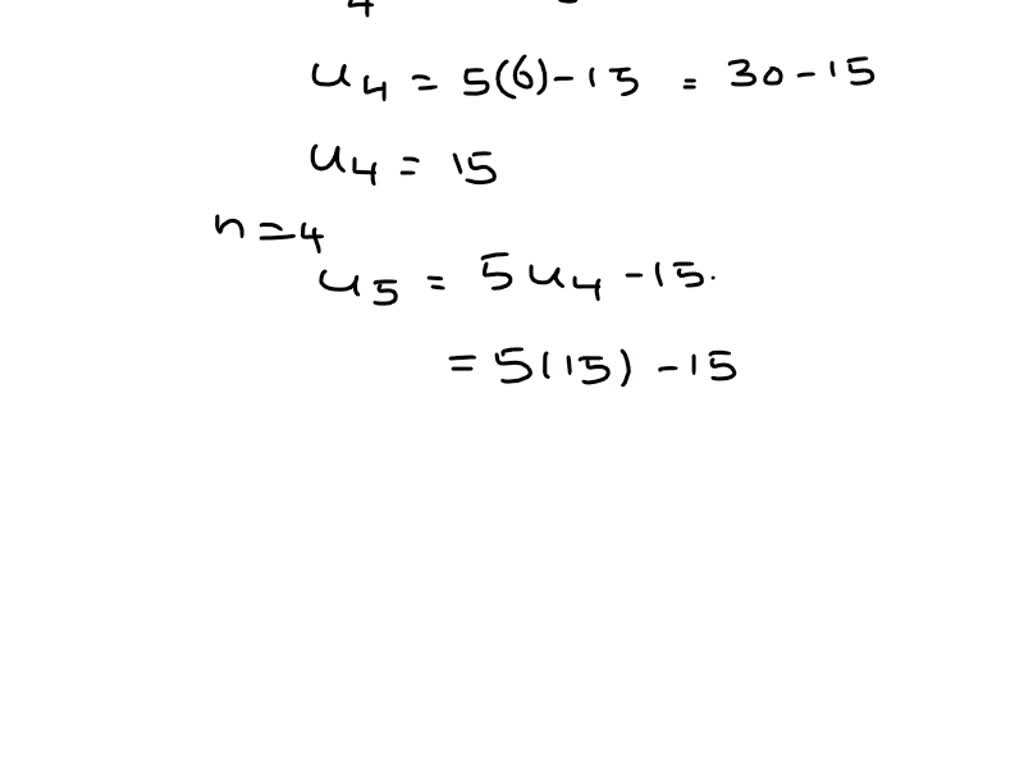 4
u₄ = 5(6) - 15 = 30 - 15
u₄ = 15
n = 4
u₅ = 5u₄ - 15.
= 5(15) - 15